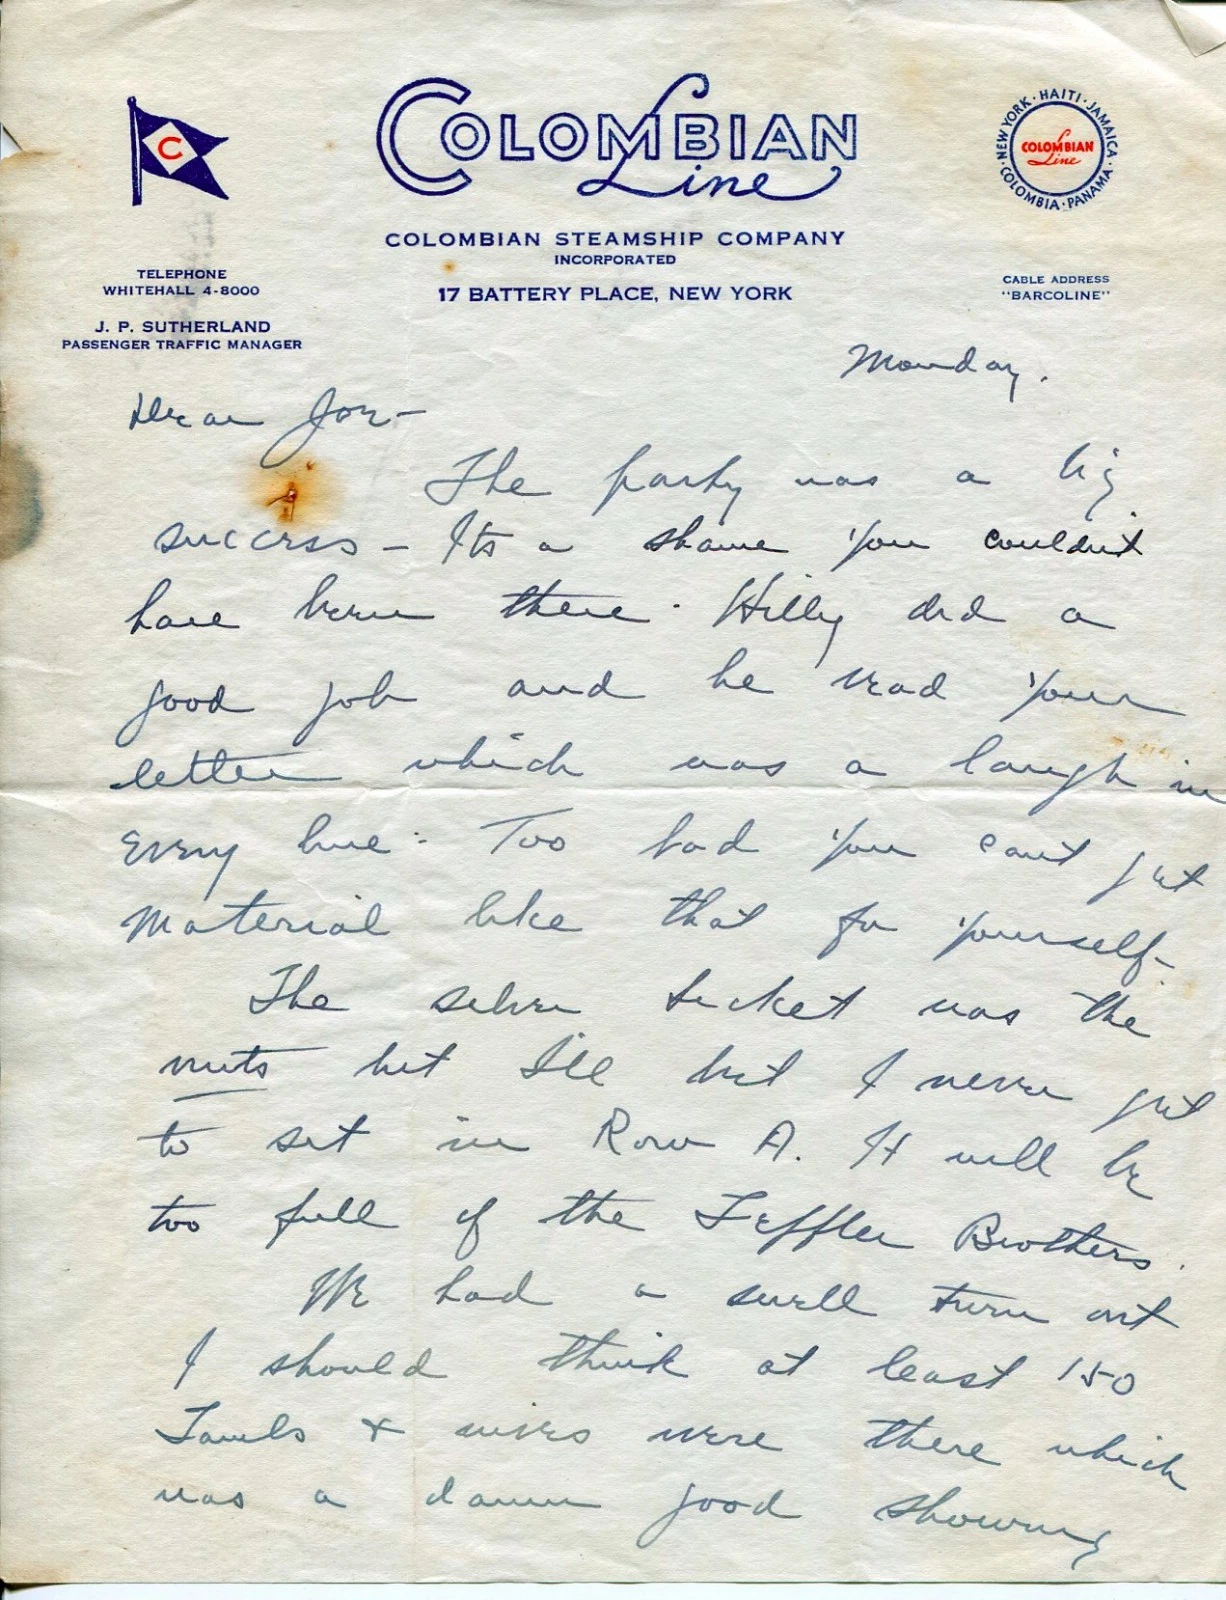 C
COLOMBIAN
Line
NEW YORK · HAITI · JAMAICA · PANAMA · COLOMBIA ·
COLOMBIAN
Line
COLOMBIAN STEAMSHIP COMPANY
INCORPORATED
17 BATTERY PLACE, NEW YORK
TELEPHONE
WHITEHALL 4-8000
J. P. SUTHERLAND
PASSENGER TRAFFIC MANAGER
CABLE ADDRESS
"BARCOLINE"
Monday.
Dear Joe-
The party was a big
success - Its a shame you couldn't
have been there. Hilly did a
good job and he read your
letter which was a laugh in
every line. Too bad you can't get
material like that for yourself-
The silver ticket was the
nuts but I'll bet I never get
to set in Row A. It will be
too full of the Leffler Brothers.
We had a swell turn out
I should think at least 150
Lambs & wives were there which
was a damn good showing